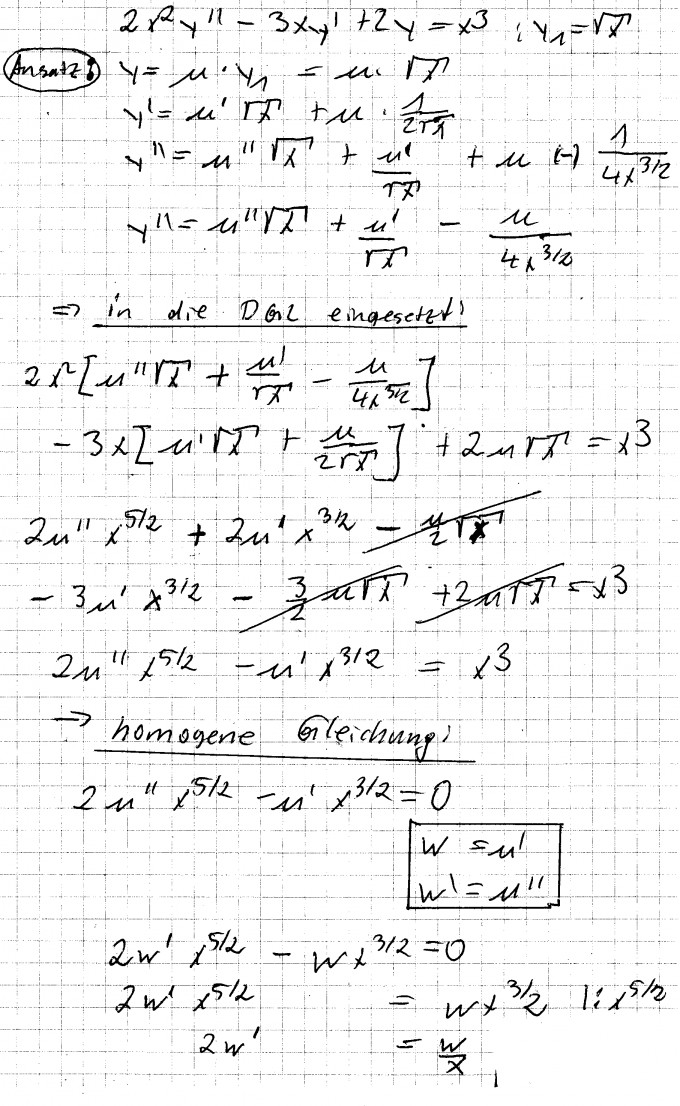 2x²y'' - 3xy' + 2y = x³ ; y₁ = √x
Ansatz: y = u · y₁ = u · √x
y' = u' √x + u · 1/(2√x)
y'' = u'' √x + u'/√x + u (-) 1/(4x^(3/2))
y'' = u'' √x + u'/√x - u/(4x^(3/2))
=> in die DGL eingesetzt:
2x² [u'' √x + u'/√x - u/(4x^(3/2))]
- 3x [u' √x + u/(2√x)] + 2u√x = x³
2u'' x^(5/2) + 2u' x^(3/2) - u/2 √x
- 3u' x^(3/2) - 3/2 u√x + 2u√x = x³
2u'' x^(5/2) - u' x^(3/2) = x³
-> homogene Gleichung:
2u'' x^(5/2) - u' x^(3/2) = 0
w = u'
w' = u''
2w' x^(5/2) - w x^(3/2) = 0
2w' x^(5/2) = w x^(3/2) |: x^(5/2)
2w' = w/x